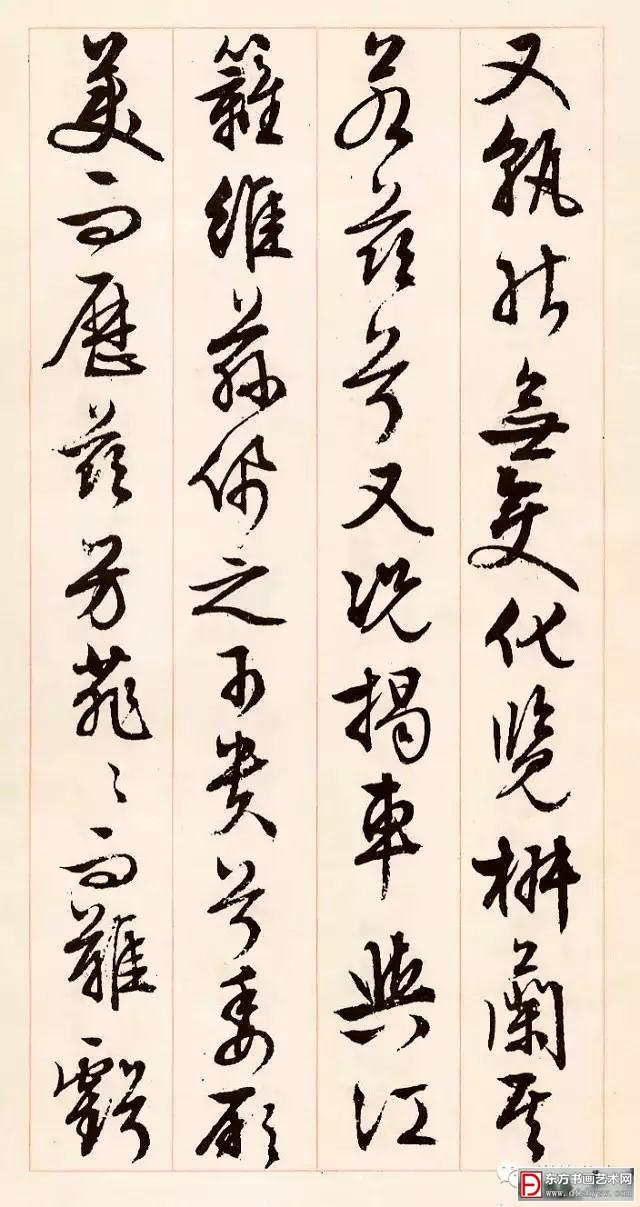 又孰能無變化覽椒蘭其
若茲兮又況揭車與江
蘺維茲佩之可貴兮委厥
美而歷茲芳菲〻而難虧
东方书画艺术网
www.dfshysw.com